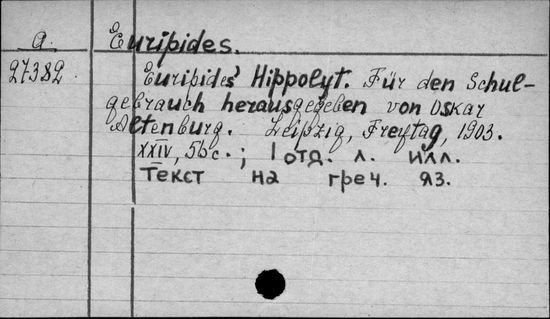 a. Euripides.
27382 Euripides' Hippolyt. Für den Schul-
gebrauch herausgegeben von Oskar
Altenburg. Leipzig, Freytag, 1903.
XXIV, 56 с.; 1 отд. л. илл.
Текст на греч. яз.